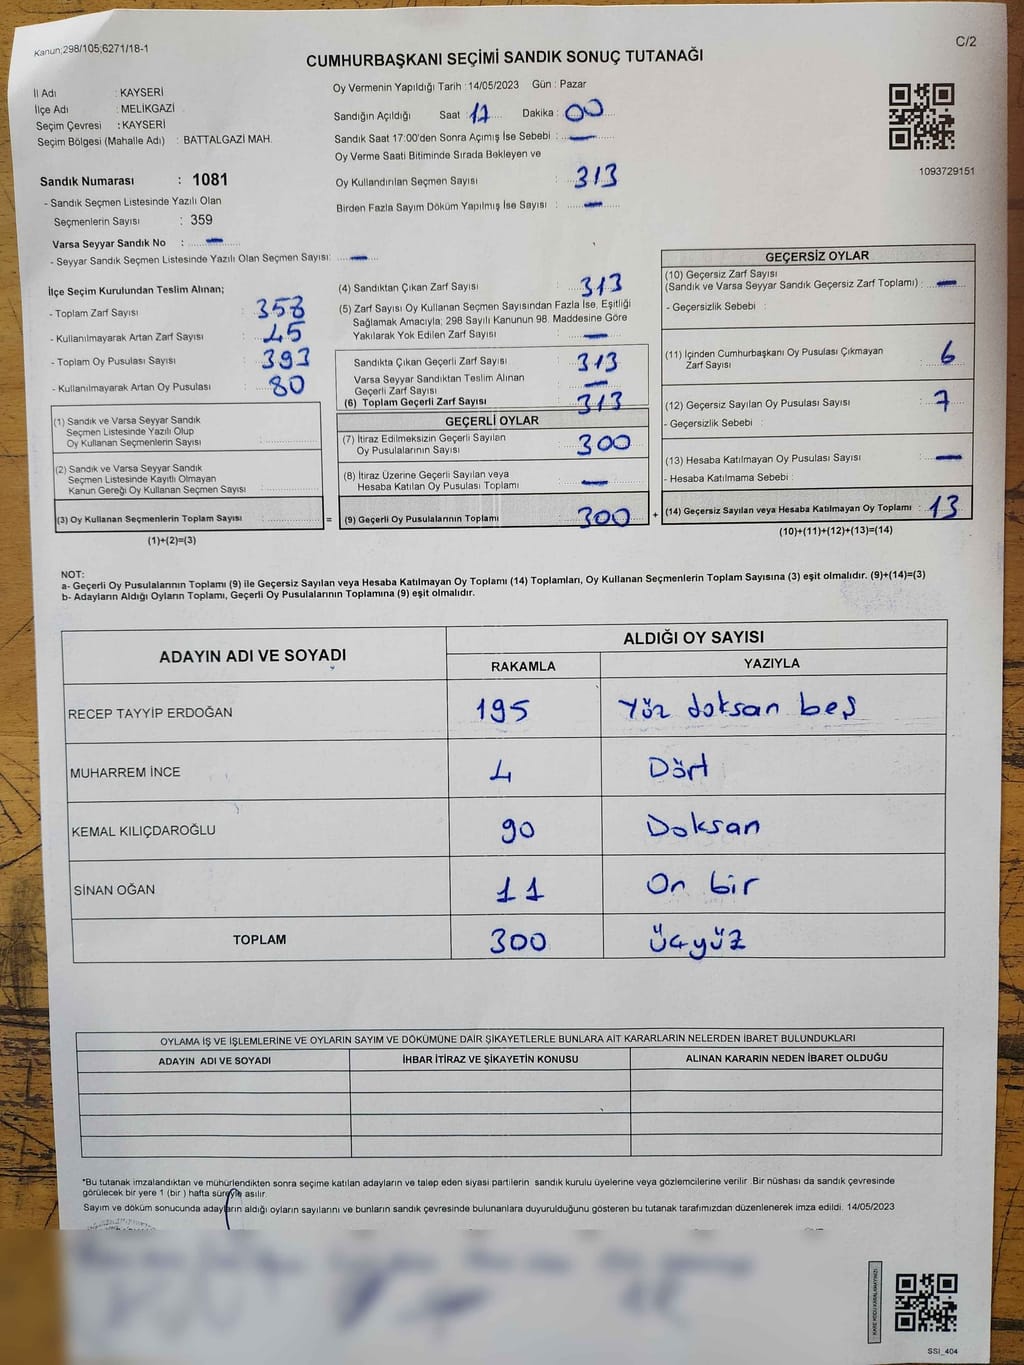 Kanun;298/105;6271/18-1
C/2
CUMHURBAŞKANI SEÇİMİ SANDIK SONUÇ TUTANAĞI
İl Adı : KAYSERİ
İlçe Adı : MELİKGAZİ
Seçim Çevresi : KAYSERİ
Seçim Bölgesi (Mahalle Adı) : BATTALGAZİ MAH.
Oy Vermenin Yapıldığı Tarih : 14/05/2023 Gün : Pazar
Sandığın Açıldığı Saat : 17 Dakika : 00
Sandık Saat 17:00'den Sonra Açımış İse Sebebi : —
Oy Verme Saati Bitiminde Sırada Bekleyen ve
Oy Kullandırılan Seçmen Sayısı : 313
Birden Fazla Sayım Döküm Yapılmış İse Sayısı : —
1093729151
Sandık Numarası : 1081
- Sandık Seçmen Listesinde Yazılı Olan
Seçmenlerin Sayısı : 359
Varsa Seyyar Sandık No : —
- Seyyar Sandık Seçmen Listesinde Yazılı Olan Seçmen Sayısı: —
İlçe Seçim Kurulundan Teslim Alınan;
- Toplam Zarf Sayısı : 358
- Kullanılmayarak Artan Zarf Sayısı : 45
- Toplam Oy Pusulası Sayısı : 393
- Kullanılmayarak Artan Oy Pusulası : 80
(1) Sandık ve Varsa Seyyar Sandık
Seçmen Listesinde Yazılı Olup
Oy Kullanan Seçmenlerin Sayısı :
(2) Sandık ve Varsa Seyyar Sandık
Seçmen Listesinde Kayıtlı Olmayan
Kanun Gereği Oy Kullanan Seçmen Sayısı :
(3) Oy Kullanan Seçmenlerin Toplam Sayısı :
(1)+(2)=(3)
=
(4) Sandıktan Çıkan Zarf Sayısı : 313
(5) Zarf Sayısı Oy Kullanan Seçmen Sayısından Fazla İse, Eşitliği
Sağlamak Amacıyla; 298 Sayılı Kanunun 98. Maddesine Göre
Yakılarak Yok Edilen Zarf Sayısı : —
Sandıkta Çıkan Geçerli Zarf Sayısı : 313
Varsa Seyyar Sandıktan Teslim Alınan
Geçerli Zarf Sayısı : —
(6) Toplam Geçerli Zarf Sayısı : 313
GEÇERLİ OYLAR
(7) İtiraz Edilmeksizin Geçerli Sayılan
Oy Pusulalarının Sayısı : 300
(8) İtiraz Üzerine Geçerli Sayılan veya
Hesaba Katılan Oy Pusulası Toplamı : —
(9) Geçerli Oy Pusulalarının Toplamı : 300
+
GEÇERSİZ OYLAR
(10) Geçersiz Zarf Sayısı
(Sandık ve Varsa Seyyar Sandık Geçersiz Zarf Toplamı) : —
- Geçersizlik Sebebi :
(11) İçinden Cumhurbaşkanı Oy Pusulası Çıkmayan
Zarf Sayısı : 6
(12) Geçersiz Sayılan Oy Pusulası Sayısı : 7
- Geçersizlik Sebebi :
(13) Hesaba Katılmayan Oy Pusulası Sayısı : —
- Hesaba Katılmama Sebebi :
(14) Geçersiz Sayılan veya Hesaba Katılmayan Oy Toplamı : 13
(10)+(11)+(12)+(13)=(14)
NOT:
a- Geçerli Oy Pusulalarının Toplamı (9) ile Geçersiz Sayılan veya Hesaba Katılmayan Oy Toplamı (14) Toplamları, Oy Kullanan Seçmenlerin Toplam Sayısına (3) eşit olmalıdır. (9)+(14)=(3)
b- Adayların Aldığı Oyların Toplamı, Geçerli Oy Pusulalarının Toplamına (9) eşit olmalıdır.
ADAYIN ADI VE SOYADI
ALDIĞI OY SAYISI
RAKAMLA YAZIYLA
RECEP TAYYİP ERDOĞAN 195 Yüz doksan beş
MUHARREM İNCE 4 Dört
KEMAL KILIÇDAROĞLU 90 Doksan
SİNAN OĞAN 11 On bir
TOPLAM 300 Üçyüz
OYLAMA İŞ VE İŞLEMLERİNE VE OYLARIN SAYIM VE DÖKÜMÜNE DAİR ŞİKAYETLERLE BUNLARA AİT KARARLARIN NELERDEN İBARET BULUNDUKLARI
ADAYIN ADI VE SOYADI İHBAR İTİRAZ VE ŞİKAYETİN KONUSU ALINAN KARARIN NEDEN İBARET OLDUĞU
*Bu tutanak imzalandıktan ve mühürlendikten sonra seçime katılan adayların ve talep eden siyasi partilerin sandık kurulu üyelerine veya gözlemcilerine verilir. Bir nüshası da sandık çevresinde
görülecek bir yere 1 (bir) hafta süreyle asılır.
Sayım ve döküm sonucunda adayların aldığı oyların sayılarını ve bunların sandık çevresinde bulunanlara duyurulduğunu gösteren bu tutanak tarafımızdan düzenlenerek imza edildi. 14/05/2023
KARE KODU KARALAMAYINIZ!
SSI_404